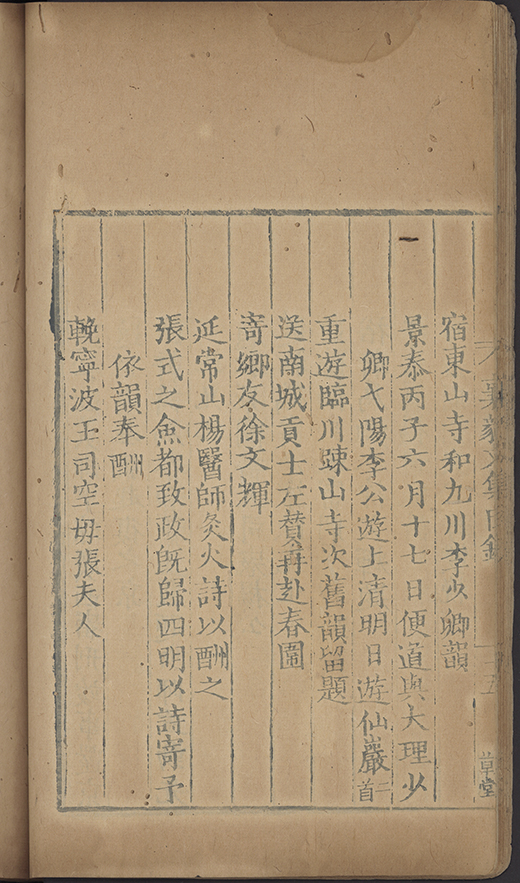 宿東山寺和九川李少卿韻
景泰丙子六月十七日便道與大理少
卿弋陽李公遊上清明日遊仙巖二首
重遊臨川踈山寺次舊韻留題
送南城貢士左贊再赴春圍
寄鄉友徐文輝
延常山楊醫師灸火詩以酬之
張式之僉都致政旣歸四明以詩寄予
依韻奉酬
輓寧波王司空毋張夫人
草堂